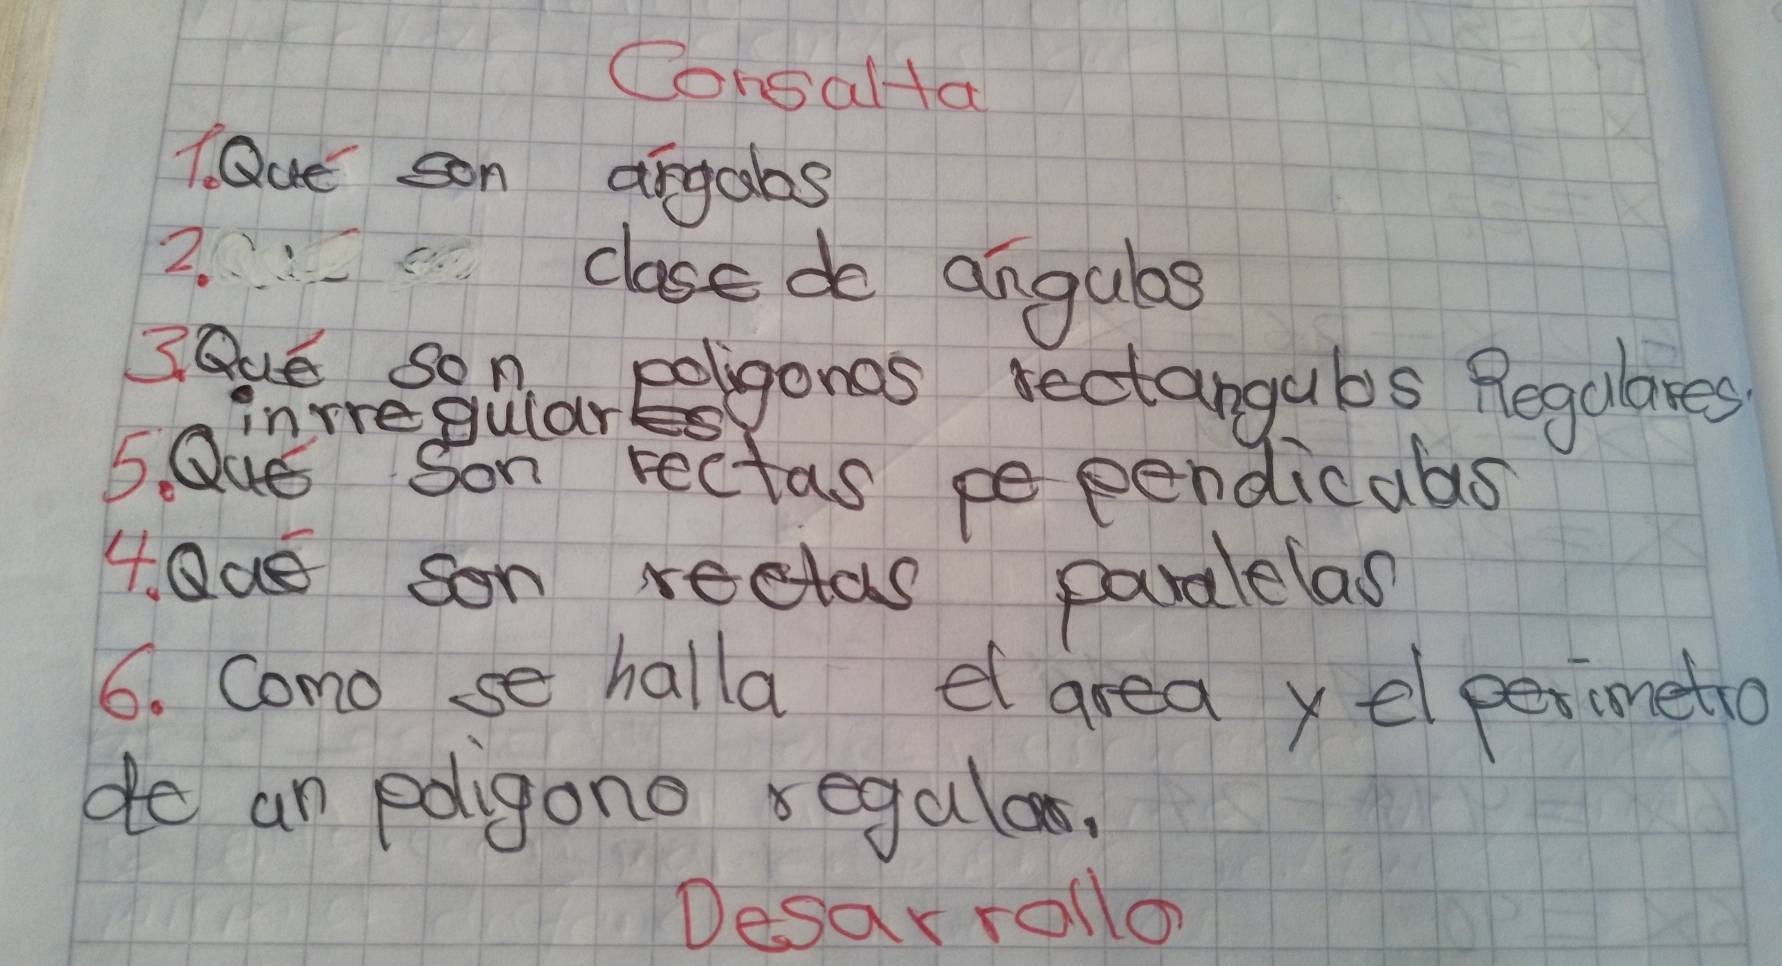 Consalta
1.Qué son ángulos
2. clase de ángulos
3.Qué son polígonos rectangulos Regulares.
inrregulares
5.Qué son rectas pependiculas
4.Qué son rectas paralelas
6. Como se halla el area y el perímetro
de un polígono regular.
Desarrollo